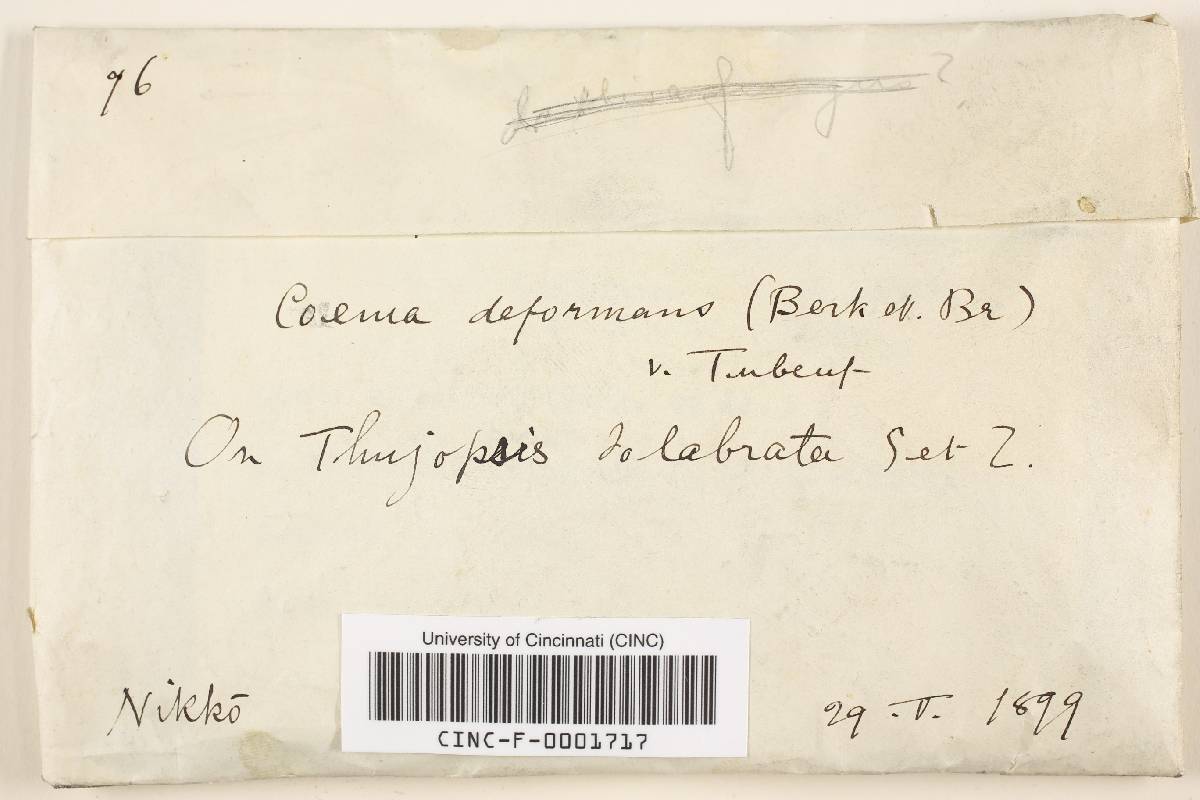 96
Caeoma deformans (Berk et. Br)
v. Tubeuf
On Thujopsis dolabrata S et Z.
University of Cincinnati (CINC)
CINC-F-0001717
Nikkō
29 . V . 1899